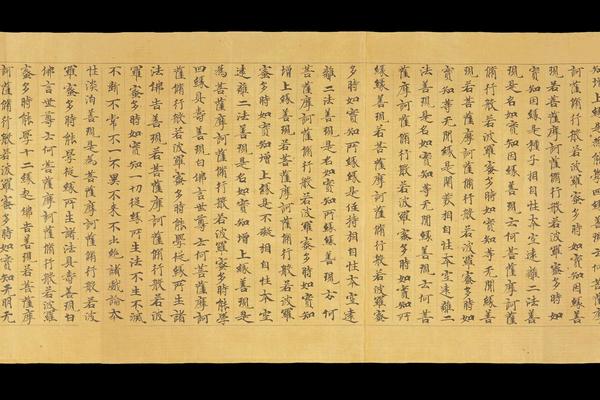 訶薩脩行般若波羅蜜多時如實知因緣善
現若菩薩摩訶薩脩行般若波羅蜜多時如
實知因緣是種子相自性本空遠離二法善
現是名如實知因緣善現云何菩薩摩訶薩
脩行般若波羅蜜多時如實知等无間緣善
現若菩薩摩訶薩脩行般若波羅蜜多時如
實知等无間緣是開發相自性本空遠離二
法善現是名如實知等无間緣善現云何菩
薩摩訶薩脩行般若波羅蜜多時如實知所
緣緣善現若菩薩摩訶薩脩行般若波羅蜜
多時如實知所緣緣是任持相自性本空遠
離二法善現是名如實知所緣緣善現云何
菩薩摩訶薩脩行般若波羅蜜多時如實知
增上緣善現若菩薩摩訶薩脩行般若波羅
蜜多時如實知增上緣是不礙相自性本空
遠離二法善現是名如實知增上緣善現是
為菩薩摩訶薩脩行般若波羅蜜多時能學
四緣具壽善現白佛言世尊云何菩薩摩訶
薩脩行般若波羅蜜多時能學從緣所生諸
法佛告善現若菩薩摩訶薩脩行般若波
羅蜜多時如實知一切從緣所生法不生不滅
不斷不常不一不異不來不出絕諸戲論本
性淡泊善現是為菩薩摩訶薩脩行般若波
羅蜜多時能學從緣所生諸法具壽善現白
佛言世尊云何菩薩摩訶薩脩行般若波羅
蜜多時能學十二緣起佛告善現若菩薩摩
訶薩脩行般若波羅蜜多時如實知无明无